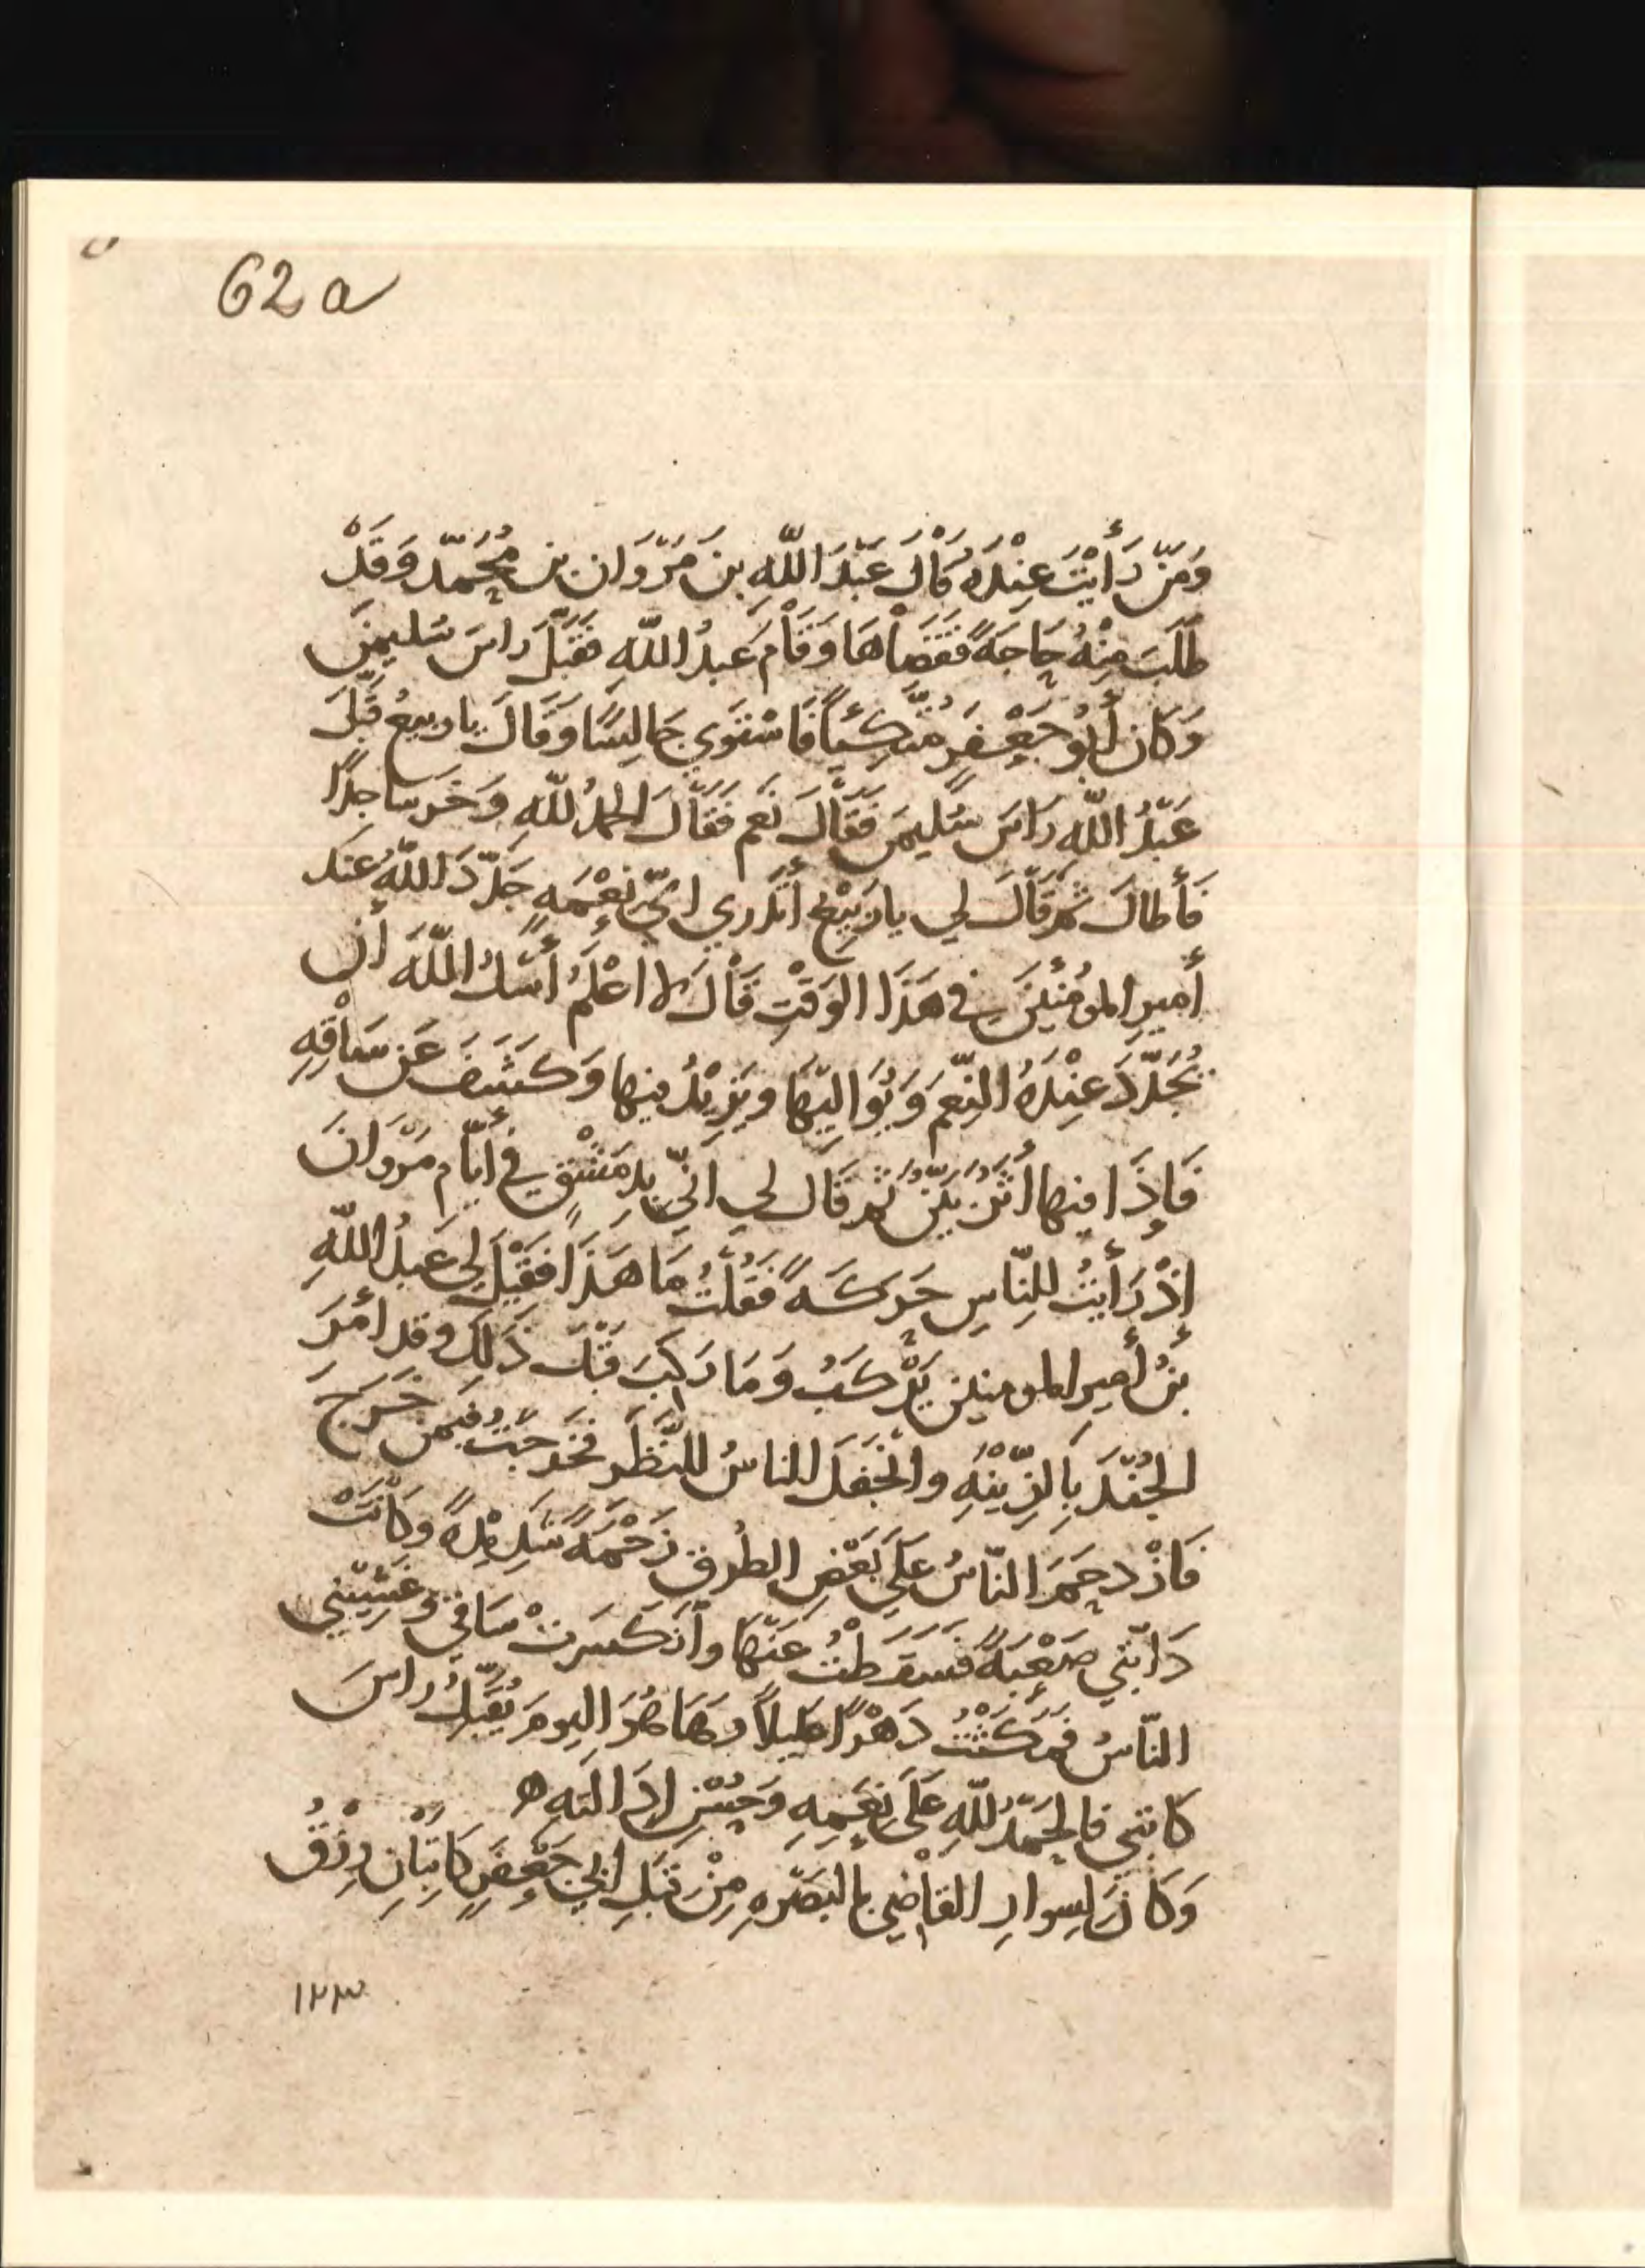 62a
وَمَنْ رَأَيْتَ عِنْدَهُ قَالَ عَبْدَ اللّهِ بنَ مَرْوَان بن مُحَمّد وَقَدْ
طَلَبَ مِنْهُ حَاجَةً فَقَضَاهَا وَقَامَ عَبدُ اللّهِ فقَبَّلَ راسَ سُليمنَ
وَكَان أَبُو جَعْفَرٍ مُتَّكِئًا فَاسْتَوَي جَالِسًا وَقَالَ يا ربيعُ قَبَّلَ
عَبْدُ اللّه رَاسَ سُليمَنَ فَقَالَ نَعَم فَقَالَ الحمدُ للّهِ وَخَر ساجدًا
فَأَطالَ ثمَّ قَالَ لي يا رَبِيْعُ أتَدري ايّ نِعْمَهٍ جَدّدَ اللّهُ عند
أميرِ المومنينَ في هَذَا الوَقْتِ قَالَ لا اعْلَمُ أسَلُ اللّهَ أن
يُجَدّدَ عِنْدَهُ النِّعَمَ وَيُوَالِيَهَا ويَزِيْدُ فيها وَكَشَفَ عَن سَاقِهِ
فَإِذَا فيها أَثَرٌ بَيّنٌ ثم قَال لي انّي بِدِمَشْقٍ في أيّام مَرْوَانَ
إذْ رَأَيتُ للنّاسِ حَرَكَه فَقُلْتُ مَا هَذَا فَقَيْلَ لِي عَبدُ اللّهِ
بنُ أميرِ المومنين يَرْكَبُ وَمَا رَكِبَ قَبْلَ ذَلِكَ وقد أمَرَ
الجُنْدَ بِالزّينْهِ وانْجَفَلَ الناسُ للنَّظَرِ فخَرجتُ فيمَن خَرَجَ
فَازْدحَمَ النّاسُ عَلَي بَعْضِ الطُرقِ زَحْمَةً شَدِيْدةً وَكَانَتْ
دَابّتي صَعْبَةً فسَقَطْتُ عَنْهَا وانكَسَرتْ سَاقي وغَشِيَني
النّاسُ فمَكَثْتُ دَهْرًا عَليلاً وهَا هُوَ اليومَ يُقَبّلُ راسَ
كاتبي فالحَمْدُ للّهِ عَلَى نِعَمِهِ وَحُسْنِ إدَالَتِهِ ه
وَكَانَ لِسوارِ القَاضِي بالبَصْرهِ مِنْ قِبَلِ ابي جَعْفَرٍ كَاتِبَانِ رِزْقُ
١٢٣